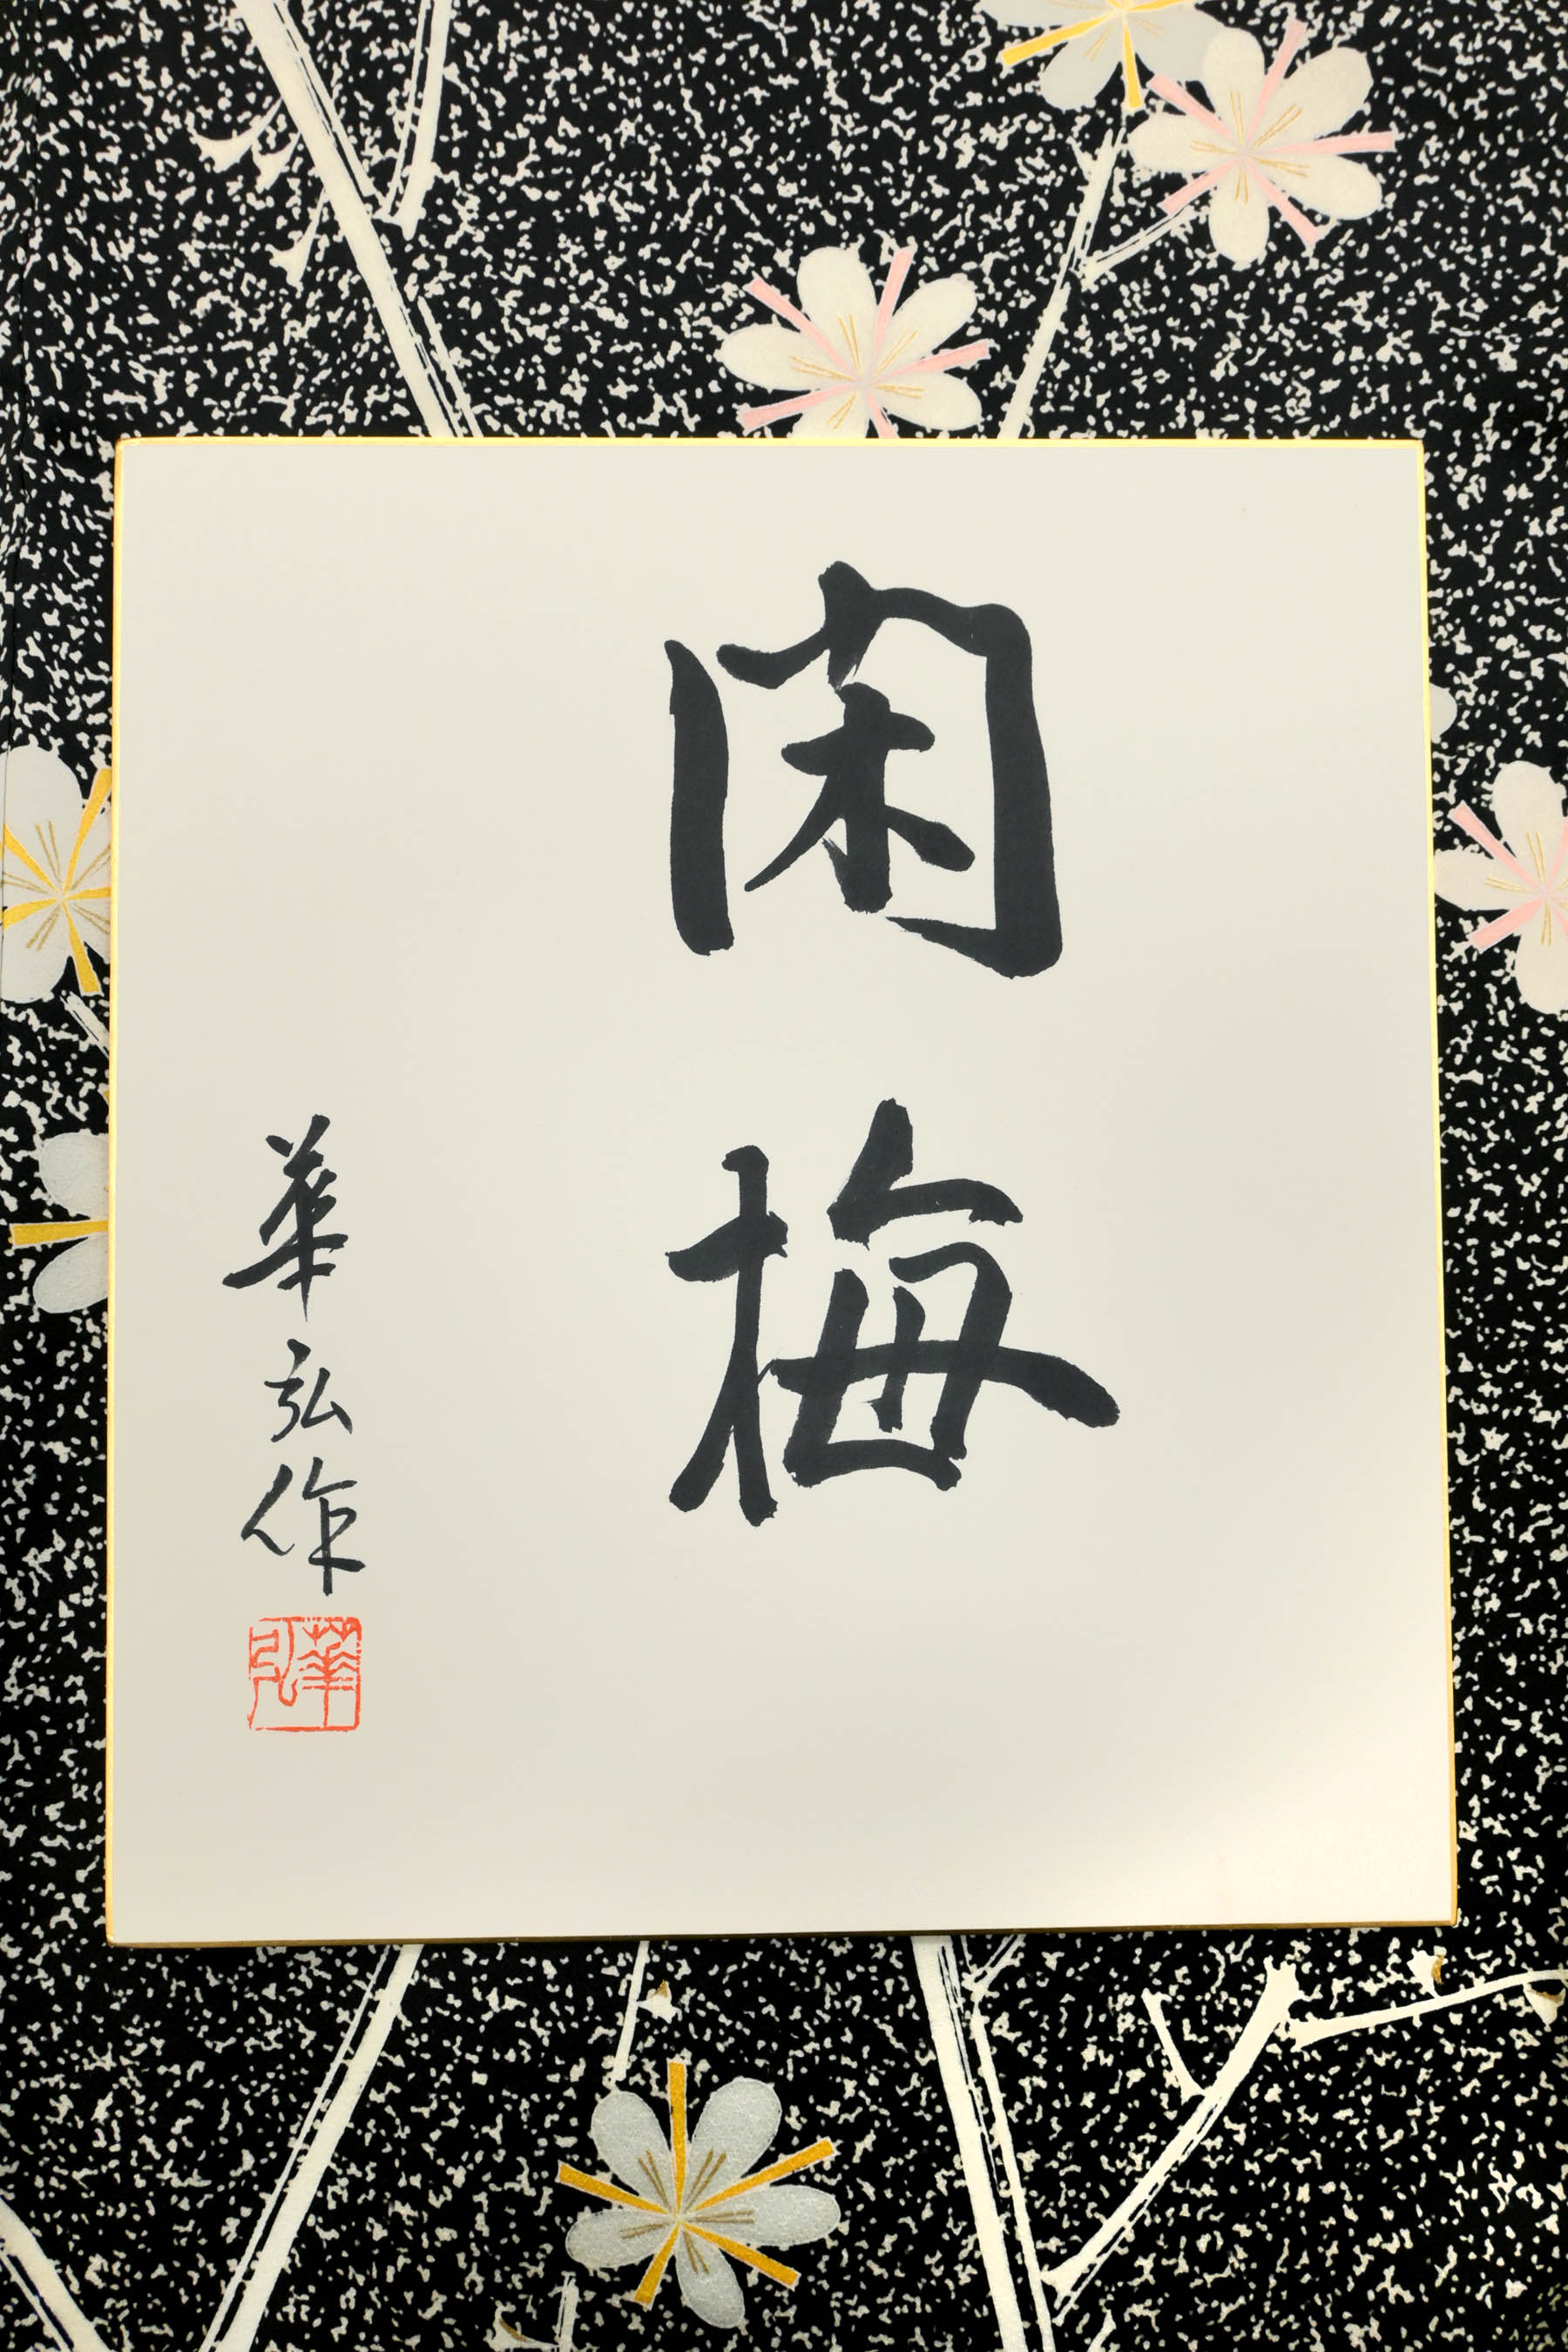 閑梅
華弘作
華弘